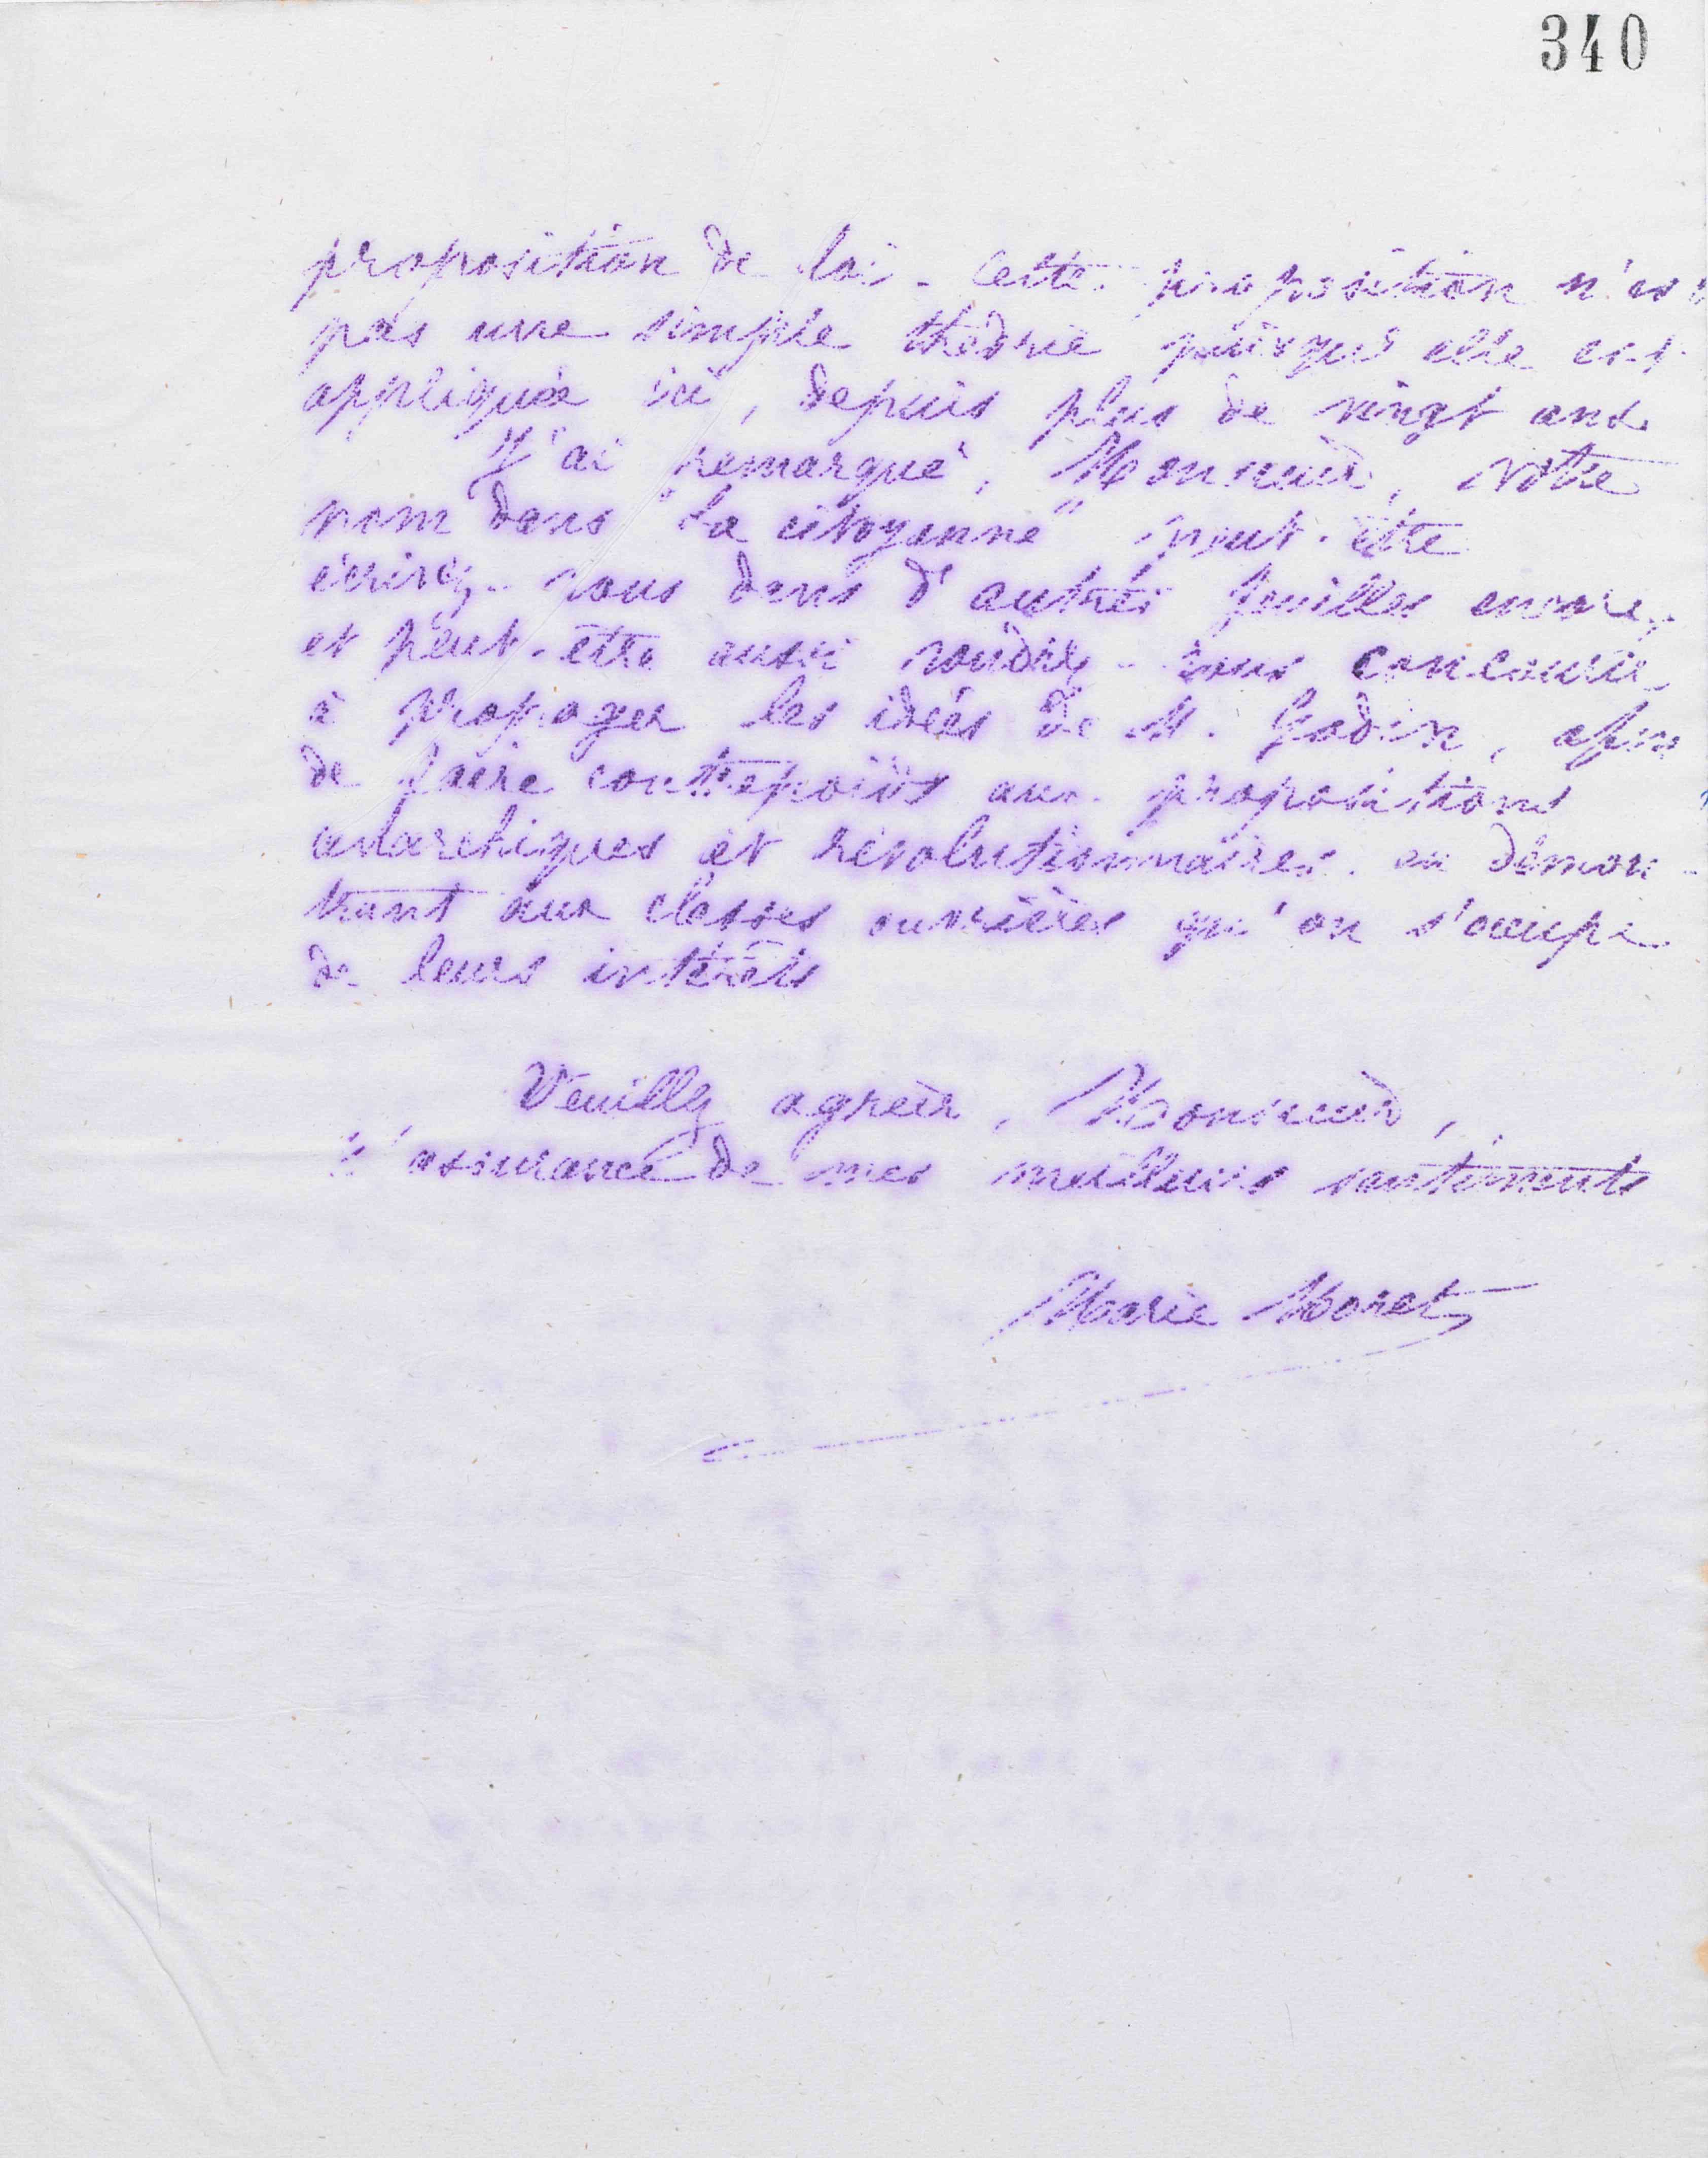 340
proposition de loi. Cette proposition n'est
pas une simple théorie puisque elle est
appliquée ici, depuis plus de vingt ans.
J'ai remarqué, Monsieur, votre
nom dans "La citoyenne" peut-être
écrivez-vous dans d'autres feuilles encore,
et peut-être aussi voudrez-vous concourir
à propager les idées de M. Godin, afin
de faire contrepoids aux propositions
anarchiques et révolutionnaires en démon-
trant aux classes ouvrières qu'on s'occupe
de leurs intérêts
Veuillez agréer, Monsieur,
l'assurance de mes meilleurs sentiments
Marie Moret